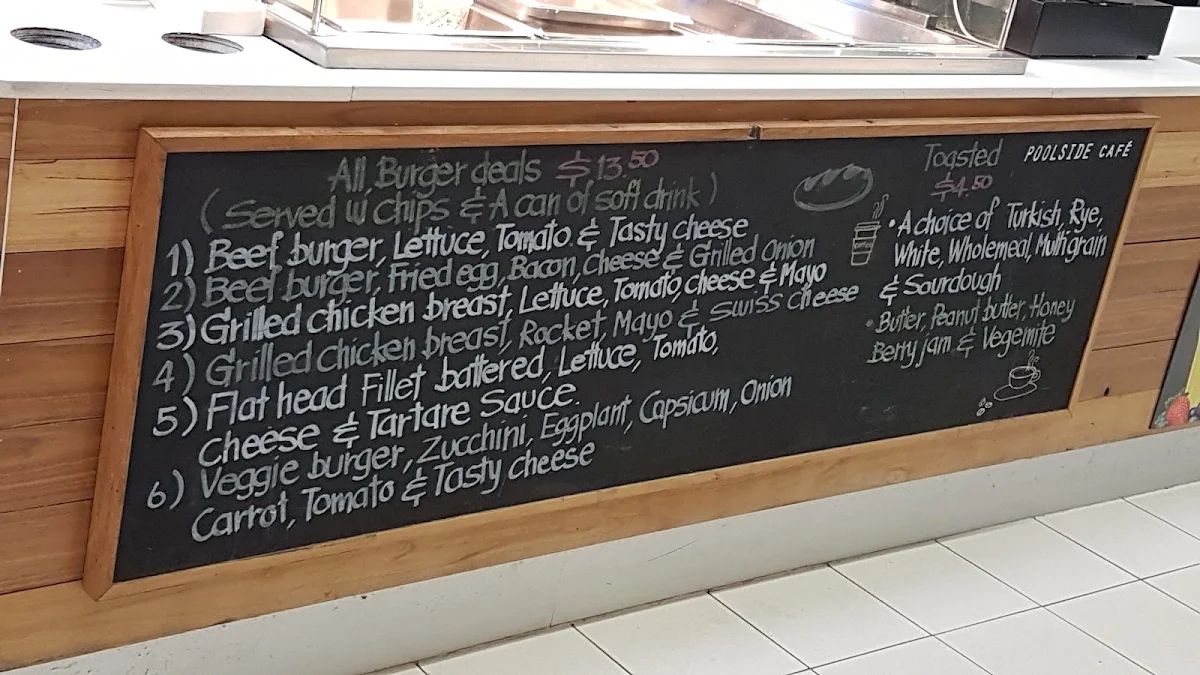 All Burger deals $13.50
(Served w chips & A can of soft drink)
1) Beef burger, Lettuce, Tomato & Tasty cheese
2) Beef burger, Fried egg, Bacon, cheese & Grilled Onion
3) Grilled chicken breast, Lettuce, Tomato, cheese & Mayo
4) Grilled chicken breast, Rocket, Mayo & Swiss cheese
5) Flat head Fillet battered, Lettuce, Tomato,
Cheese & Tartare Sauce.
6) Veggie burger, Zucchini, Eggplant, Capsicum, Onion
Carrot, Tomato & Tasty cheese
POOLSIDE CAFÉ
Toasted
$4.50
• A choice of Turkish, Rye,
White, Wholemeal, Multigrain
& Sourdough
• Butter, Peanut butter, Honey
Berry jam & Vegemite
coffee